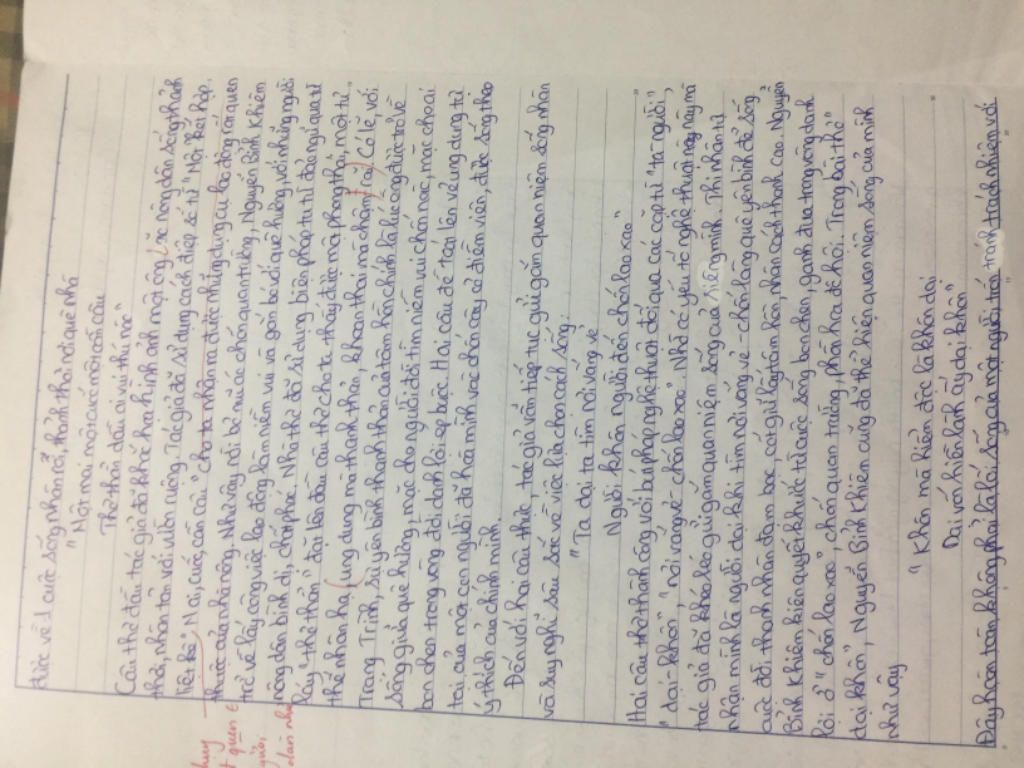 thức về 1 cuộc sống nhàn nhã, thảnh thơi nơi quê nhà
" Một mai, một cuốc, một cần câu
Thơ thẩn dầu ai vui thú nào"
Câu thơ đầu tác giả đã khắc họa hình ảnh một ông lão nông dân sống thảnh
thơi, nhàn tản với vườn ruộng. Tác giả đã sử dụng cách điệp số từ " Một " kết hợp.
liệt kê " Mai, cuốc, cần câu " cho ta nhận ra được những dụng cụ lao động rất quen
thuộc của nhà nông. Như vậy rời bỏ nơi các chốn quan trường, Nguyễn Bỉnh Khiêm
trở về lấy công việc lao động làm niềm vui và gắn bó với quê hương, với những người
nông dân bình dị, chất phác. Nhà thơ đã sử dụng biện pháp tu từ đảo ngữ qua từ
láy " thơ thẩn " đặt lên đầu câu thơ cho ta thấy được một phong thái, một tư
thế nhàn hạ ( ung dung mà thanh thản, khoan thai mà chậm rãi ) Có lẽ, với
Trạng Trình, sự yên bình thanh thản của tâm hồn chính là lúc ông được trở về
sống giữa quê hương, mặc cho người đời tìm niềm vui chốn nào, mặc cho ai
bon chen trong vòng đời danh lợi ép buộc. Hai câu đề toát lên vẻ ung dung tự
tại của một con người đã hòa mình vào chốn cây cỏ điền viên, được sống theo
ý thích của chính mình.
Đến với hai câu thực, tác giả vẫn tiếp tục gửi gắm quan niệm sống nhàn
và suy nghĩ sâu sắc về việc lựa chọn cách sống.
" Ta dại ta tìm nơi vắng vẻ
Người khôn người đến chốn lao xao "
Hai câu thơ thành công với bút pháp nghệ thuật đối qua các cặp từ " ta - người ",
" dại - khôn ", " nơi vắng vẻ - chốn lao xao ". Nhờ có yếu tố nghệ thuật này mà
tác giả đã khéo léo gửi gắm quan niệm sống của riêng mình. Thi nhân tự
nhận mình là người dại khi tìm nơi vắng vẻ - chốn làng quê yên bình để sống
cuộc đời thanh nhàn, đạm bạc, cốt giữ lấy tâm hồn, nhân cách thanh cao. Nguyễn
Bỉnh Khiêm kiên quyết khước từ cuộc sống bon chen, ganh đua trong vòng danh
lợi ở " chốn lao xao ", chốn quan trường phồn hoa đô hội. Trong bài thơ "
dại khôn ", Nguyễn Bỉnh Khiêm cũng đã thể hiện quan niệm sống của mình
như vậy
" Khôn mà hiểm độc là khôn dại
Dại vốn hiền lành ấy dại khôn "
Đây hoàn toàn không phải là lối sống của một người trốn tránh trách nhiệm với